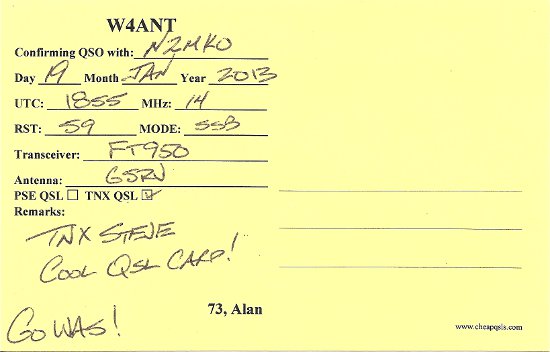 W4ANT
Confirming QSO with: N2MKO
Day 19 Month JAN Year 2013
UTC: 1855 MHz: 14
RST: 59 MODE: SSB
Transceiver: FT950
Antenna: G5RV
PSE QSL ☐ TNX QSL ☑
Remarks:
TNX STEVE
COOL QSL CARD!
73, Alan
GO WAS!
www.cheapqsls.com